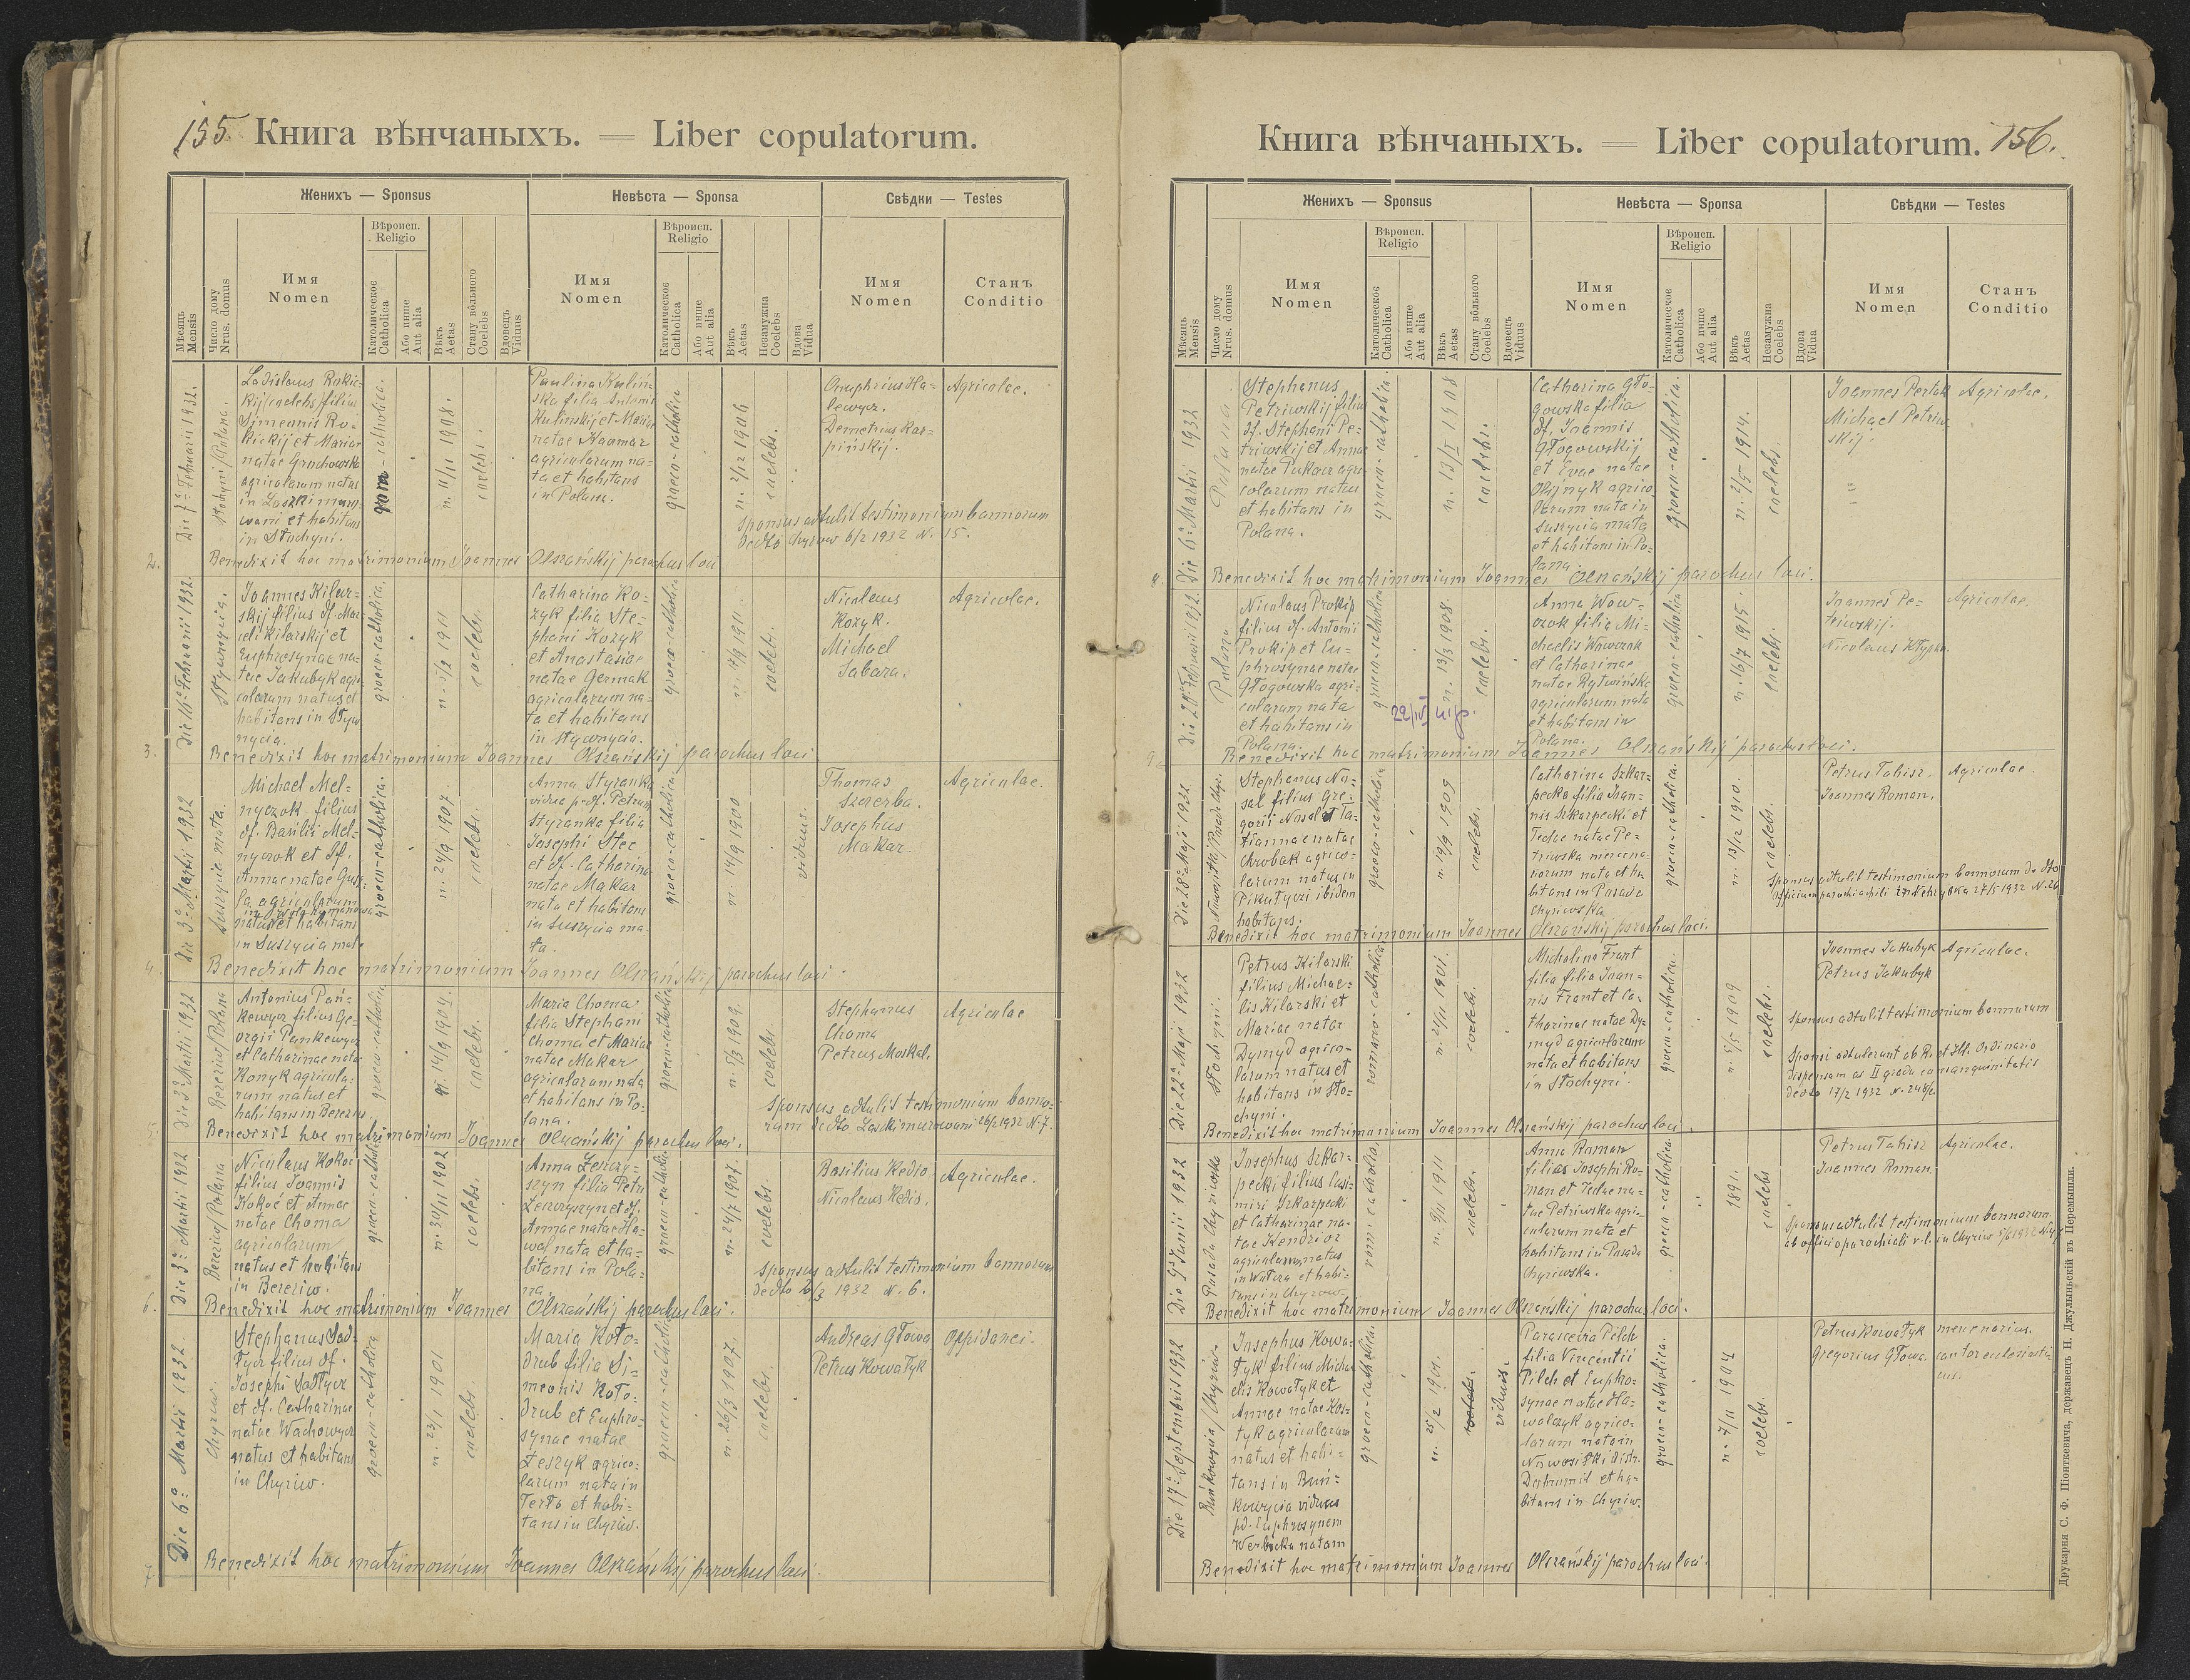 155.
Книга вѣнчаныхъ. — Liber copulatorum.
Женихъ — Sponsus
Невѣста — Sponsa
Свѣдки — Testes
Мѣсяць Mensis
Число дому Nrus. domus
Имя Nomen
Вѣроисп. Religio
Католическое Catholica
Або инше Aut alia
Вѣкъ Aetas
Стану вôльного Coelebs
Вдовець Viduus
Имя Nomen
Вѣроисп. Religio
Католическое Catholica
Або инше Aut alia
Вѣкъ Aetas
Незамужна Coelebs
Вдова Vidua
Имя Nomen
Станъ Conditio
Die 7ª Februarii 1932.
Ladislaus Rokic=
kij (coelebs) filius
Simeonis Ro=
kickij et Mariae
natae Gruchowska
agricolarum natus
in Laszki muro
wani et habitans
in Stochyni.
catholica.
n. 11/11 1908.
coelebs.
Paulina Kulin=
ska filia Antonii
Kulinskij et Mariae
natae
agricolarum na=
ta et habitans
in Polana.
graeco-catholica
n. 2/12 1906
coelebs.
Onuphrius Ha=
lewycz.
Demetrius Kar=
pińskij.
Agricolae.
Sponsus adtulit testimonium bannorum
dedto Chyrow 6/2 1932 N. 15.
2. Benedixit hoc matrimonium Joannes Olszańskij parochus loci
Die 16ª Februarii 1932.
Stywnycia.
Joannes Kilar=
skij filius df. Mar=
celi Kilarskij et
Euphrosynae na=
tae Jakubyk agri
colarum natus et
habitans in Styw
nycia.
graeco-catholica.
1911
coelebs.
Catharina Ko=
zyk filia Ste=
phani Kozyk
et Anastasiae
natae Germak
agricolarum na=
ta et habitans
in Stywnycia.
graeco-catholica
n. 4/9 1911.
coelebs.
Nicolaus
Kozyk.
Michael
Sabara.
Agricolae.
3. Benedixit hoc matrimonium Joannes Olszańskij parochus loci
Die 3ª Martii 1932
Suszycia mała.
Michael Mel=
nyczok filius
df. Basilii Mel=
nyczok et df.
Annae natae
agricolarum
natus et habitans
in Suszycia mała
graeco-catholica.
n. 24/9 1907.
coelebs.
Anna Styranka
vidua p. df. Petrum
Styranka filia
Josephi Stec
et df. Catharina
natae Makar
nata et habitans
in Suszycia ma=
ła.
graeco-catholica.
n. 14/9 1900
viduus.
Thomas
Szczerba.
Josephus
Makar.
Agricolae.
4. Benedixit hoc matrimonium Joannes Olszańskij parochus loci.
Die 3ª Martii 1932
Bereziw/Polana
Antonius Pań=
kewycz filius Ge=
orgii Pankewycz
et Catharinae natae
Konyk agricola=
rum natus et
habitans in Bereziw.
graeco-catholica
n. 14/9 1904.
coelebs.
Maria Choma
filia Stephani
Choma et Mariae
natae Makar
agricolarum nata
et habitans in Po=
lana.
graeco-catholica
n. 5/3 1909.
coelebs.
Stephanus
Choma
Petrus Moskal.
Agricolae
Sponsus adtulit testimonium banno=
rum dedto Laszki murowani 26/2 1932 N. 7.
5. Benedixit hoc matrimonium Joannes Olszańskij parochus loci.
Die 3ª Martii 1932
Bereziw/Polana
Nicolaus Kokoć
filius Joannis
Kokoć et Annae
natae Choma
agricolarum
natus et habitans
in Bereziw.
graeco-catholica
n. 30/11 1902
coelebs.
Anna Łeszczy=
szyn filia Petri
Łeszczyszyn et df.
Annae natae Ha=
wal nata et ha=
bitans in Pola=
na.
graeco-catholica
n. 24/7 1907.
coelebs.
Basilius Kedio
Nicolaus Kedis.
Agricolae.
Sponsus adtulit testimonium bannorum
dedto 2/3 1932 N. 6.
6. Benedixit hoc matrimonium Joannes Olszańskij parochus loci.
Die 6ª Martii 1932.
Chyriw.
Stephanus Sad=
łycz filius df.
Josephi Sadłycz
et df. Catharinae
natae Wachowycz
natus et habitans
in Chyriw.
graeco-catholica
n. 23/1 1901
coelebs.
Maria Koło=
drub filia Si=
meonis Koło=
drub et Euphro=
synae natae
Łeszyk agrico=
larum nata in
Terło et habi=
tans in Chyriw.
graeco-catholica
n. 26/3 1907.
coelebs.
Andreas Głowa
Petrus Kowałyk
Oppidanei.
7. Benedixit hoc matrimonium Joannes Olszańskij parochus loci.
Книга вѣнчаныхъ. — Liber copulatorum.
156.
Женихъ — Sponsus
Невѣста — Sponsa
Свѣдки — Testes
Мѣсяць Mensis
Число дому Nrus. domus
Имя Nomen
Вѣроисп. Religio
Католическое Catholica
Або инше Aut alia
Вѣкъ Aetas
Стану вôльного Coelebs
Вдовець Viduus
Имя Nomen
Вѣроисп. Religio
Католическое Catholica
Або инше Aut alia
Вѣкъ Aetas
Незамужна Coelebs
Вдова Vidua
Имя Nomen
Станъ Conditio
Die 6ª Martii 1932
Polana.
Stephanus
Petriwskij filius
df. Stephani Pe=
triwskij et Annae
natae Pukacz agri
colarum natus
et habitans in
Polana.
graeco-catholica.
n. 13/I 1908
coelebs.
Catharina Gło=
gowska filia
df. Joannis
Głogowskij
et Evae natae
Olijnyk agrico
larum nata in
Suszycia mała
et habitans in Po=
lana.
graeco-catholica.
n. 2/5 1914.
coelebs.
Joannes Pertak
Michael Petriw
skij.
Agricolae.
8. Benedixit hoc matrimonium Joannes Olszańskij parochus loci.
Die 28ª Februarii 1932.
Polana
Nicolaus Prokip
filius df. Antonii
Prokip et Eu=
phrosynae natae
Głogowska agri=
colarum nata
et habitans in
Polana.
graeco-catholica
n. 13/3 1908.
coelebs.
22/IV
Anna Wow=
czok filia Mi=
chaelis Wowczok
et Catharinae
natae Rytwińska
agricolarum nata
et habitans in
Polana.
graeco-catholica
n. 16/7 1915.
coelebs.
Joannes Pe=
triwskij.
Nicolaus Kłypka.
Agricolae.
Benedixit hoc matrimonium Joannes Olszańskij parochus loci.
Die 28ª Maji 1932
Stephanus No=
sal filius Gre=
gorii Nosal et Ta=
tiannae natae
Chrobak agrico=
larum natus in
Pikułyczi ibidem
habitans.
graeco-catholica
n. 19/9 1909
coelebs.
Catharina Szkar=
pecka filia Joan=
nis Szkarpecki et
Teclae natae Pe=
triwska mercena=
riorum nata et ha
bitans in Posada
Chyriwska
graeco-catholica.
n. 13/12 1910.
coelebs.
Petrus Tabisz.
Joannes Roman.
Agricolae.
Sponsus adtulit testimonium bannorum de dto
27/5 1932 N. 26
Benedixit hoc matrimonium Joannes Olszańskij parochus loci.
Die 22ª Maji 1932
Stochyni.
Petrus Kilarski
filius Michae=
lis Kilarski et
Mariae natae
Dymyd agrico=
larum natus et
habitans in Sto=
chyni.
romano-catholica
n. 24/11 1901.
coelebs.
Micholina Frant
filia filia Joan=
nis Frant et Ca=
tharinae natae Dy=
myd agricolarum
nata et habitans
in Stochyni.
graeco-catholica.
n. 5/5 1909
coelebs.
Joannes Jakubyk
Petrus Jakubyk
Agricolae.
Sponsus adtulit testimonium bannorum
Sponsi adtulerunt ab R. et Ill. Ordinario
dispensam as II gradu consanguinitatis
dedto 17/2 1932 N.
Benedixit hoc matrimonium Joannes Olszańskij parochus loci.
Die 9ª Junii 1932
Posada Chyriwska
Josephus Szkar=
pecki filius Casi=
miri Szkarpecki
et Catharinae na=
tae Kendzior
agricolarum natus
in Wolcza et habi=
tans in Chyrow.
rom. catholica.
1911
coelebs.
Anna Roman
filia Josephi Ro=
man et Teclae na=
tae Petriwska agri=
colarum nata et
habitans in Posada
Chyriwska.
graeco-catholica.
1891.
coelebs
Petrus Tabisz
Joannes Roman
Agricolae.
Sponsus adtulit testimonium bannorum.
ab officio parochiali r.l. in Chyriw
Benedixit hoc matrimonium Joannes Olszańskij parochus loci.
Die 17ª Septembris 1932
Buńkowycia/Chyriw.
Josephus Kowa=
łyk filius Micha
elis Kowałyk et
Annae natae Kos=
tyk agricolarum
natus et habi=
tans in Buń=
kowycia viduus
pd. Euphrosynem
Werbicka natam
graeco-catholica.
n. 25/2 1901.
coelebs.
viduus.
Parasceva Pilch
filia Vincentii
Pilch et Euphro=
synae natae Ha=
walczyk agrico=
larum nata in
Nowosiłki distr.
Dobromil et ha=
bitans in Chyriw.
graeco-catholica.
n. 7/11 1904
coelebs.
Petrus Kowałyk
Gregorius Głowa.
mercenarius.
cantor ecclesiasti
cus.
Benedixit hoc matrimonium Joannes Olszańskij parochus loci.
Друкарня С. Ф. Піонткевича, державець Н. Джулыньскій въ Перемышли.